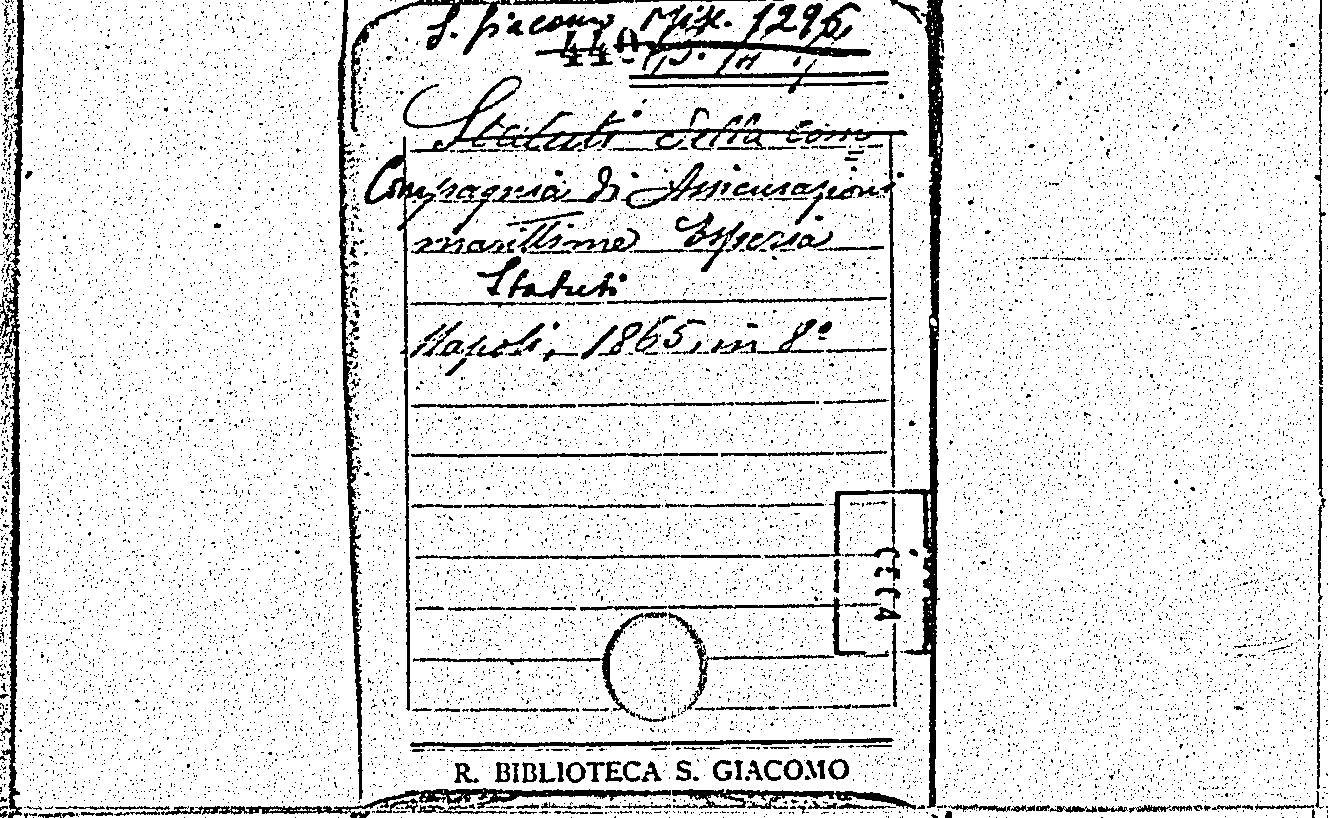 S. Giacomo Misc. 1296
Statuti della Com
Compagnia di Assicurazioni
marittime Esperia
Statuti
Napoli, 1865, in 8º
R. BIBLIOTECA S. GIACOMO